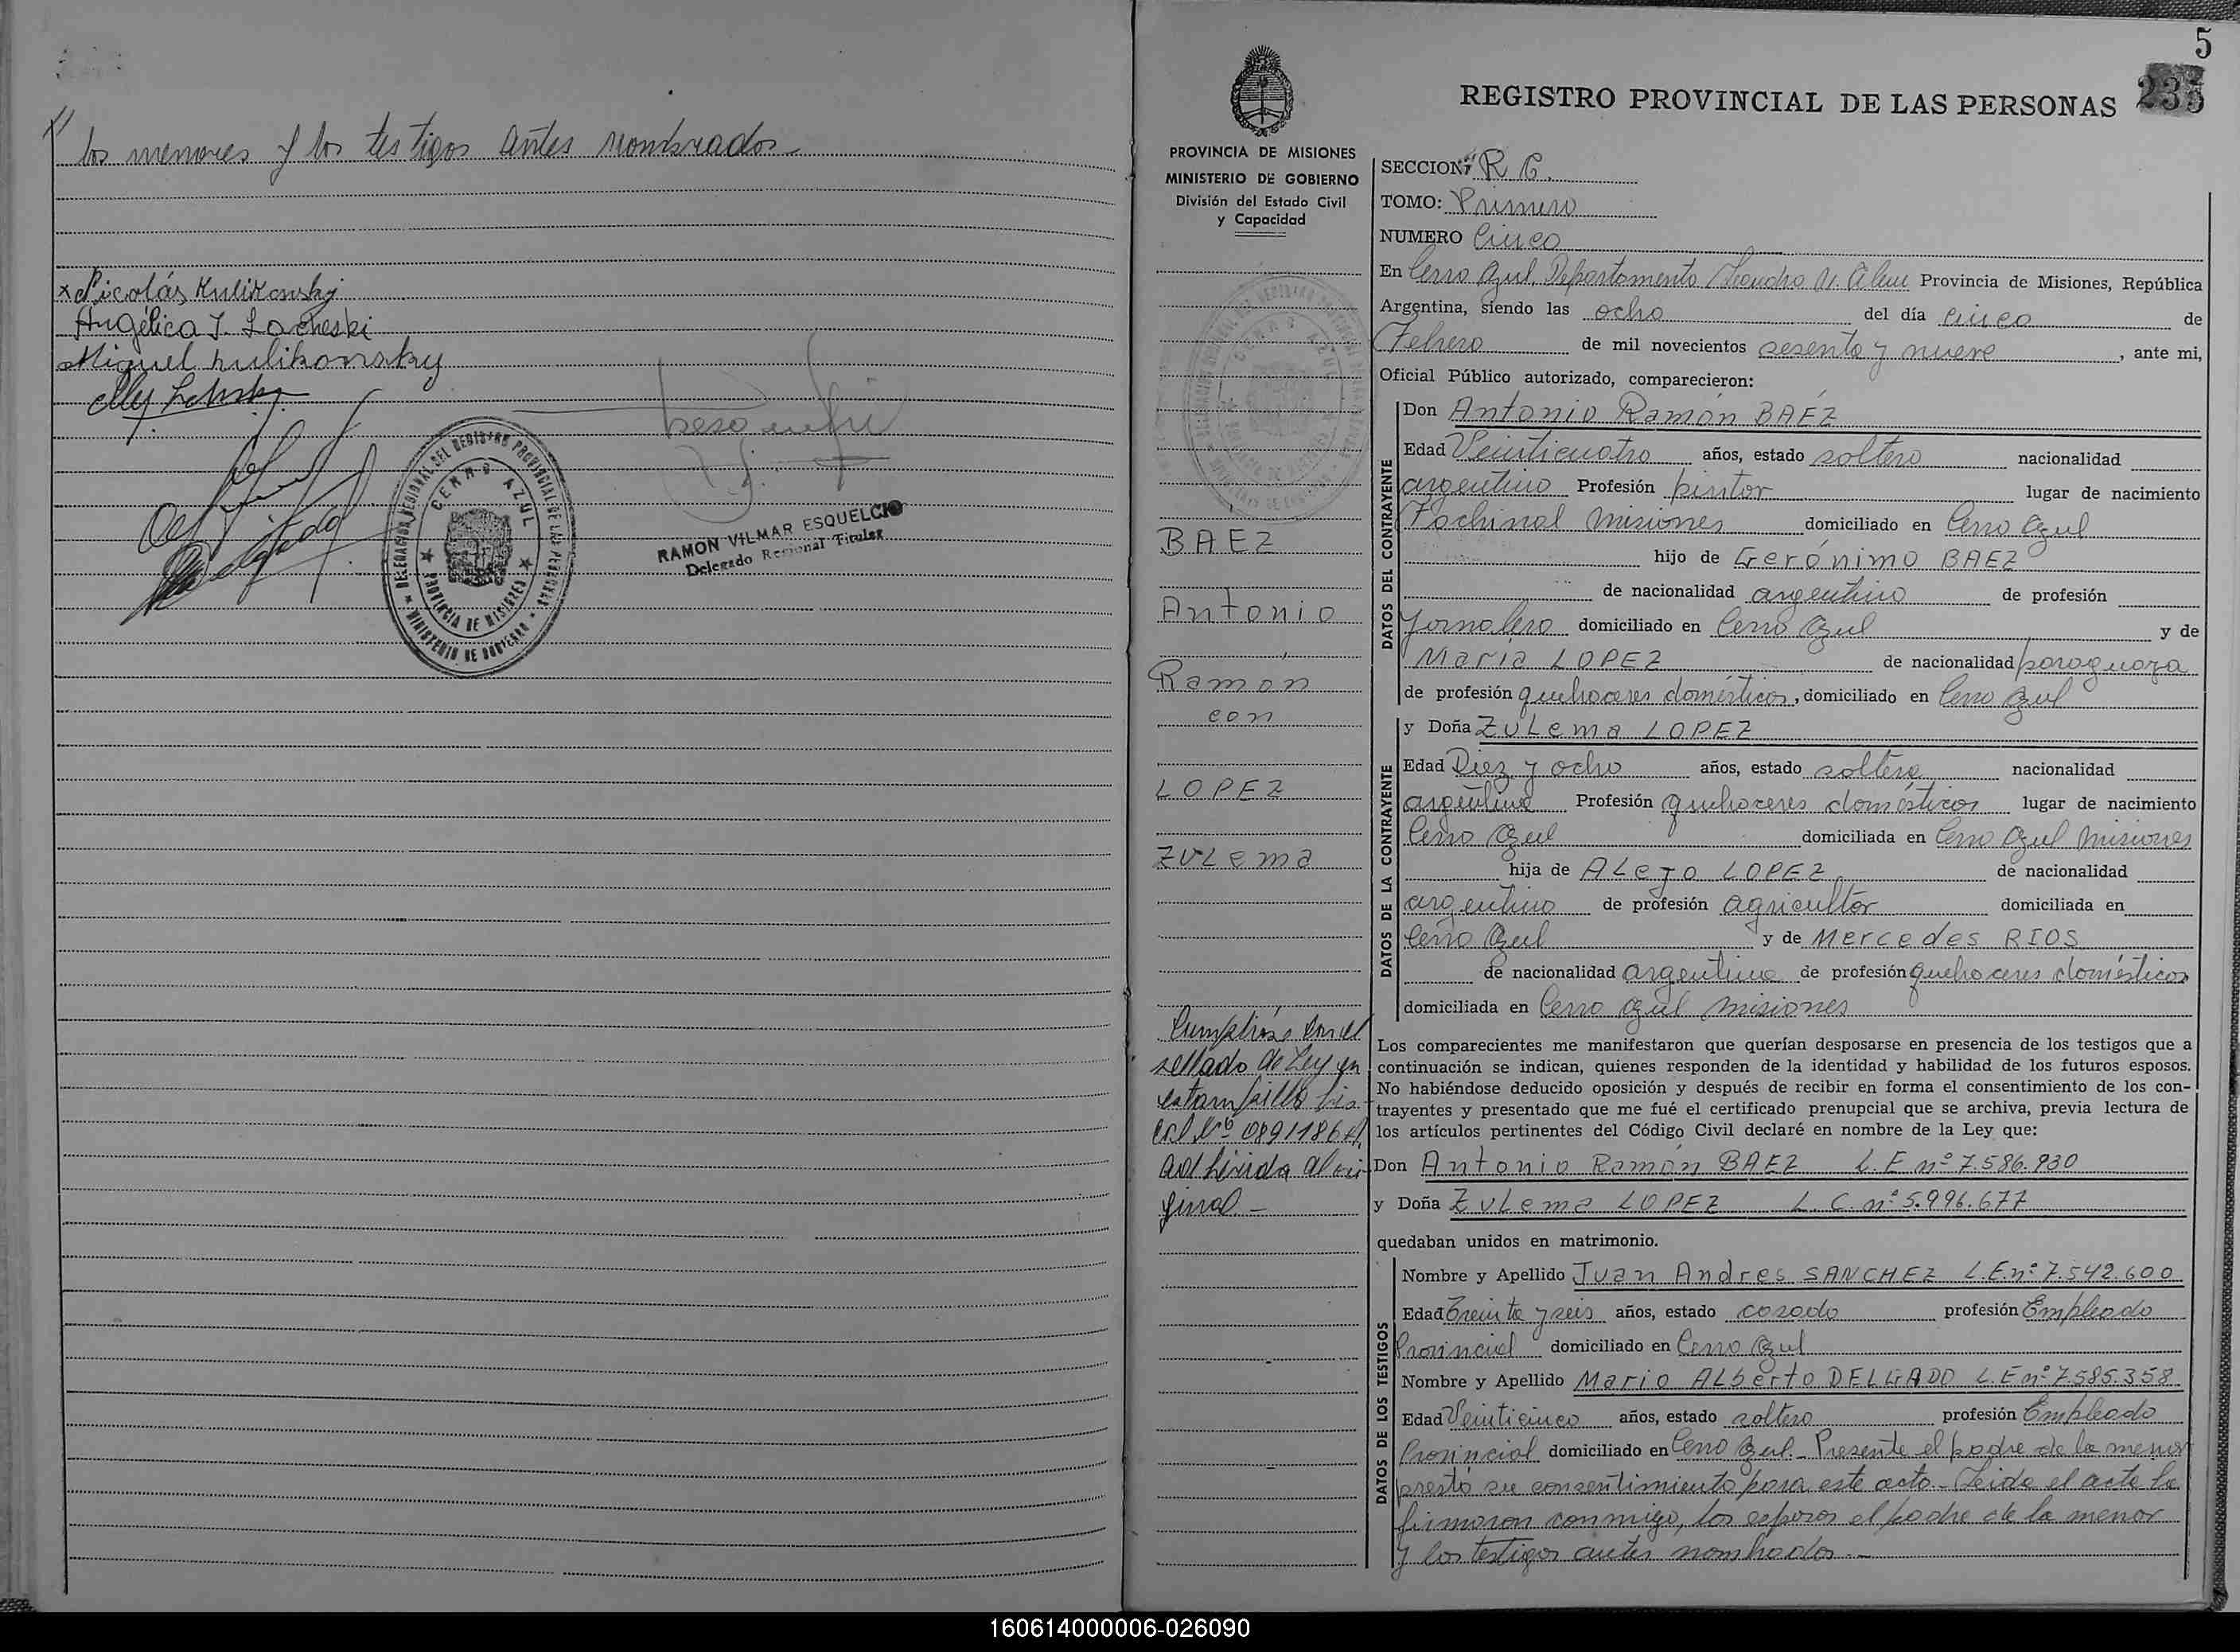 los menores y los testigos antes nombrados
Nicolás Kulikowsky
Angélica J. Lacheski
Miguel Kulikowsky
DELEGACION REGIONAL DEL REGISTRO PROVINCIAL DE LAS PERSONAS
CERRO AZUL
PROVINCIA DE MISIONES
MINISTERIO DE GOBIERNO
RAMON VILMAR ESQUELCIO
Delegado Regional Titular
5
235
REGISTRO PROVINCIAL DE LAS PERSONAS
PROVINCIA DE MISIONES
MINISTERIO DE GOBIERNO
División del Estado Civil
y Capacidad
BAEZ
Antonio
Ramón
con
LOPEZ
ZULema
sellado de Ley en
estampilla fis-
cal Nº 0891186
adherida al ori
ginal -
SECCION: R C.
TOMO: Primero
NUMERO Cinco
En Cerro Azul, Departamento Leandro N. Alem Provincia de Misiones, República
Argentina, siendo las ocho del día cinco de
Febrero de mil novecientos sesenta y nueve, ante mi,
Oficial Público autorizado, comparecieron:
DATOS DEL CONTRAYENTE
Don Antonio Ramón BAEZ
Edad Veinticuatro años, estado soltero nacionalidad
argentino Profesión pintor lugar de nacimiento
Fachinal Misiones domiciliado en Cerro Azul
hijo de Gerónimo BAEZ
de nacionalidad argentino de profesión
Jornalero domiciliado en Cerro Azul y de
María LOPEZ de nacionalidad paraguaya
de profesión quehaceres domésticos, domiciliado en Cerro Azul
DATOS DE LA CONTRAYENTE
y Doña ZULema LOPEZ
Edad Diez y ocho años, estado soltera nacionalidad
argentina Profesión quehaceres domésticos lugar de nacimiento
Cerro Azul domiciliada en Cerro Azul Misiones
hija de ALejo LOPEZ de nacionalidad
argentino de profesión agricultor domiciliada en
Cerro Azul y de Mercedes RIOS
de nacionalidad argentina de profesión quehaceres domésticos
domiciliada en Cerro Azul Misiones
Los comparecientes me manifestaron que querían desposarse en presencia de los testigos que a
continuación se indican, quienes responden de la identidad y habilidad de los futuros esposos.
No habiéndose deducido oposición y después de recibir en forma el consentimiento de los con-
trayentes y presentado que me fué el certificado prenupcial que se archiva, previa lectura de
los artículos pertinentes del Código Civil declaré en nombre de la Ley que:
Don Antonio Ramón BAEZ L.E nº 7.586.930
y Doña ZULema LOPEZ L.C. nº 5.996.677
quedaban unidos en matrimonio.
DATOS DE LOS TESTIGOS
Nombre y Apellido Juan Andres SANCHEZ L.E.nº 7.542.600
Edad Treinta y seis años, estado casado profesión Empleado
Provincial domiciliado en Cerro Azul
Nombre y Apellido Mario ALberto DELGADO L.E nº 7.585.358
Edad Veinticinco años, estado soltero profesión Empleado
Provincial domiciliado en Cerro Azul - Presente el padre de la menor
prestó su consentimiento para este acto - Leida el acta la
firmaron conmigo, los esposos el padre de la menor
y los testigos antes nombrados. -
160614000006-026090